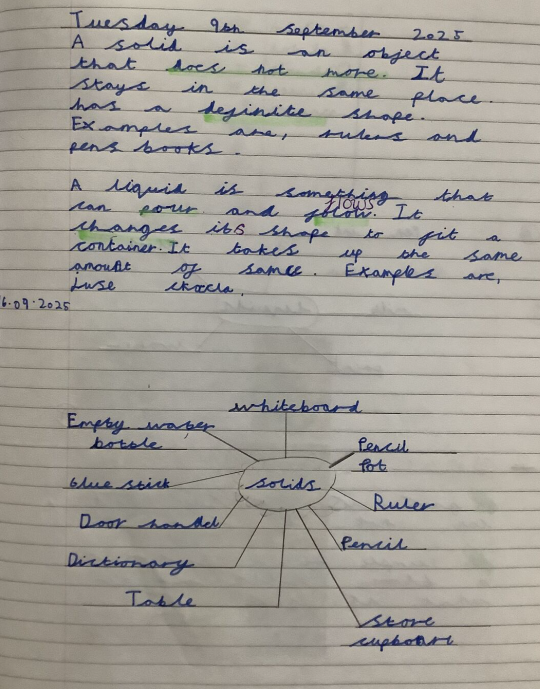 Tuesday 9th September 2025
A solid is an object
that does not move. It
stays in the same place.
has a definite shape.
Examples are, rulers and
pens books.
A liquid is something that
flows
can pour and flow. It
changes its shape to fit a
container. It takes up the same
amount of same. Examples are,
6.09.2025
whiteboard
Empty water
bottle
Pencil
Pot
Glue stick
solids
Ruler
Door handel
Pencil
Dictionary
Table
Store
cupboard